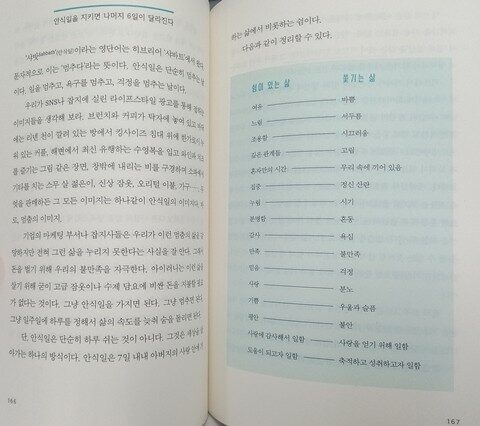 안식일을 지키면 나머지 6일이 달라진다
'사밧Sabbath(안식일)'이라는 영단어는 히브리어 '샤바트'에서 왔다.
문자적으로 이는 '멈추다'라는 뜻이다. 안식일은 단순히 멈추는 날이
다. 일을 멈추고, 욕구를 멈추고, 걱정을 멈추는 날이다.
우리가 SNS나 잡지에 실린 라이프스타일 광고를 통해 접하는
이미지들을 생각해 보라. 브런치와 커피가 탁자에 놓여 있고
에는 리넨 천이 깔려 있는 방에서 킹사이즈 침대 위에 한가로이
워 있는 커플, 해변에서 최신 유행하는 수영복을 입고 와인과
를 즐기는 그림 같은 장면, 창밖에 내리는 비를 구경하며 소파에
기타를 치는 스무 살 젊은이, 신상 잠옷, 오리털 이불, 가구
엇을 판매하든 그 모든 이미지는 하나같이 안식일의 이미지
로, 멈춤의 이미지.
기업의 마케팅 부서나 잡지사들은 우리가 이런 멈춤의 삶을
망하지만 전혀 그런 삶을 누리지 못한다는 사실을 잘 안다. 그래서
돈을 벌기 위해 우리의 불만족을 자극한다. 아이러니는 이런
살기 위해 굳이 고급 잠옷이나 수제 담요에 비싼 돈을 지불할
가 없다는 것이다. 그냥 안식일을 가지면 된다. 그냥 멈추면 된다.
그냥 일주일에 하루를 정해서 삶의 속도를 늦춰 숨을 돌리면 된다.
단, 안식일은 단순히 하루 쉬는 것이 아니다. 그것은 세상을
아가는 하나의 방식이다. 안식일은 7일 내내 아버지의 사랑 안에
166
하는 삶에서 비롯하는 쉼이다.
다음과 같이 정리할 수 있다.
쉼이 있는 삶 쫓기는 삶
여유 바쁨
느림 서두름
조용함 시끄러움
깊은 관계들 고립
혼자만의 시간 무리 속에 끼어 있음
집중 정신 산란
누림 시기
분명함 혼동
감사 욕심
만족 불만족
믿음 걱정
사랑 분노
기쁨 우울과 슬픔
평안 불안
사랑에 감사해서 일함 사랑을 얻기 위해 일함
도움이 되고자 일함 축적하고 성취하고자 일함
167